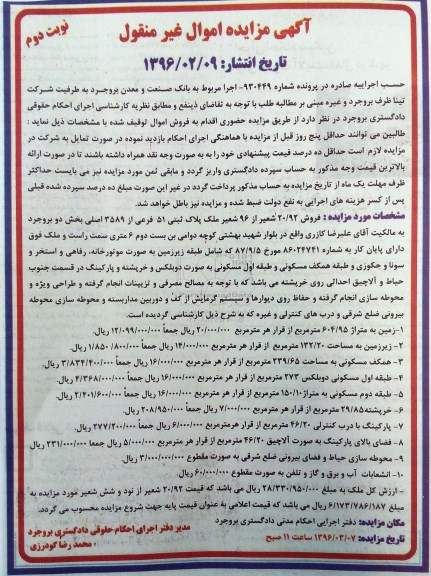 آگهی مزایده اموال غیر منقول
نوبت دوم
تاریخ انتشار: ۱۳۹۶/۰۲/۰۹
حسب اجراییه صادره در پرونده شماره ۹۳۰۴۴۹- اجرا مربوط به بانک صنعت و معدن بروجرد به طرفیت شرکت
تینا ظرف بروجرد و غیره مبنی بر مطالبه طلب با توجه به تقاضای ذینفع و مطابق نظریه کارشناسی اجرای احکام حقوقی
دادگستری بروجرد در نظر دارد از طریق مزایده حضوری اقدام به فروش اموال توقیف شده با مشخصات ذیل نماید :
طالبین می توانند حداقل پنج روز قبل از مزایده با هماهنگی اجرای احکام بازدید نموده در صورت تمایل به شرکت در
مزایده لازم است حداقل ده درصد قیمت پیشنهادی خود را به صورت وجه نقد همراه داشته باشند تا در صورت ارائه
بالاترین قیمت وجه مذکور به حساب سپرده دادگستری واریز گردد و مابقی ثمن مورد مزایده نیز می بایست حداکثر
ظرف مهلت یک ماه از تاریخ مزایده به حساب مذکور پرداخت گردد در غیر این صورت مبلغ ده درصد سپرده شده قبلی
پس از کسر هزینه های اجرایی به نفع دولت ضبط شده و مزایده نیز باطل خواهد شد.
مشخصات مورد مزایده : فروش ۲۰/۹۲ شعیر از ۹۶ شعیر ملک پلاک ثبتی ۵۱ فرعی از ۳۵۸۹ اصلی بخش دو بروجرد
به مالکیت آقای علیرضا کازری واقع در بلوار شهید بهشتی کوچه دوامی بن بست دوم ۶ متری سمت راست و ملک فوق
دارای پایان کار به شماره ۸۶۰۲۴۷۴۱ مورخ ۸۷/۹/۵ که شامل طبقه زیرزمین به صورت موتورخانه، رفاهی و استخر و
سونا و جکوزی و طبقه همکف مسکونی و طبقه اول مسکونی به صورت دوبلکس و خرپشته و پارکینگ در قسمت جنوب
حیاط و آلاچیق احداثی روی خرپشته می باشد که با توجه به مصالح مصرفی و تزیینات انجام گرفته و طراحی ویژه و
محوطه سازی انجام گرفته و حفاظ روی دیوارها و سیستم گرمایش از کف و دوربین مداربسته و محوطه سازی محوطه
بیرونی ضلع شرقی و درب های کنترلی و غیره که به شرح ذیل کارشناسی گردیده است.
۱-زمین به متراژ ۶۰۴/۹۵ مترمربع از قرار هر مترمربع ۲۰/۰۰۰/۰۰۰ ریال جمعاً ۱۲/۰۹۹/۰۰۰/۰۰۰ ریال.
۲-زیرزمین به مساحت ۱۳۲/۲۰ مترمربع از قرار هر مترمربع ۱۴/۰۰۰/۰۰۰ ریال جمعاً ۱/۸۵۰/۸۰۰/۰۰۰ ریال.
۳- همکف مسکونی به مساحت ۲۳۹/۶۵ مترمربع از قرار هر مترمربع ۱۶/۰۰۰/۰۰۰ ریال جمعاً ۳/۸۳۴/۴۰۰/۰۰۰ ریال.
۴-طبقه اول مسکونی دوبلکس ۲۷۳ مترمربع از قرار هر مترمربع ۱۶/۰۰۰/۰۰۰ ریال جمعاً ۴/۳۶۸/۰۰۰/۰۰۰ ریال.
۵-طبقه دوم مسکونی به متراژ ۱۵۰/۱۰ مترمربع از قرار هر مترمربع ۱۶/۰۰۰/۰۰۰ ریال جمعاً ۲/۴۰۱/۶۰۰/۰۰۰ ریال.
۶- خرپشته ۲۹/۸۵ مترمربع از قرار هر مترمربع ۷/۰۰۰/۰۰۰ ریال جمعاً ۲۰۸/۹۵۰/۰۰۰ ریال.
۷-پارکینگ با درب کنترلی ۴۶/۲۰ مترمربع از قرار هرمترمربع ۶/۰۰۰/۰۰۰ ریال جمعاً ۲۷۷/۲۰۰/۰۰۰ ریال.
۸- فضای بالای پارکینگ به صورت آلاچیق ۴۶/۲۰ مترمربع از قرار هر مترمربع ۵/۰۰۰/۰۰۰ ریال جمعاً ۲۳۱/۰۰۰/۰۰۰ ریال.
۹- محوطه سازی حیاط و فضای بیرونی ضلع شرقی به صورت مقطوع ۳/۰۰۰/۰۰۰/۰۰۰ ریال.
۱۰- انشعابات آب و برق و گاز و تلفن به صورت مقطوع ۶۰/۰۰۰/۰۰۰ ریال.
- ارزش کل ملک به مبلغ ۲۸/۳۳۰/۹۵۰/۰۰۰ ریال می باشد که قیمت ۲۰/۹۲ شعیر از نود و شش شعیر مورد مزایده به
مبلغ ۶/۱۷۳/۷۸۶/۱۸۷ ریال می باشد که قیمت اعلامی به عنوان قیمت پایه جهت شروع مزایده محسوب می گردد.
مکان مزایده: دفتر اجرایی احکام مدنی دادگستری بروجرد
تاریخ مزایده: ۱۳۹۶/۰۳/۰۷ ساعت ۱۱ صبح
مدیر دفتر اجرای احکام-حقوقی دادگستری بروجرد
محمد رضا گودرزی